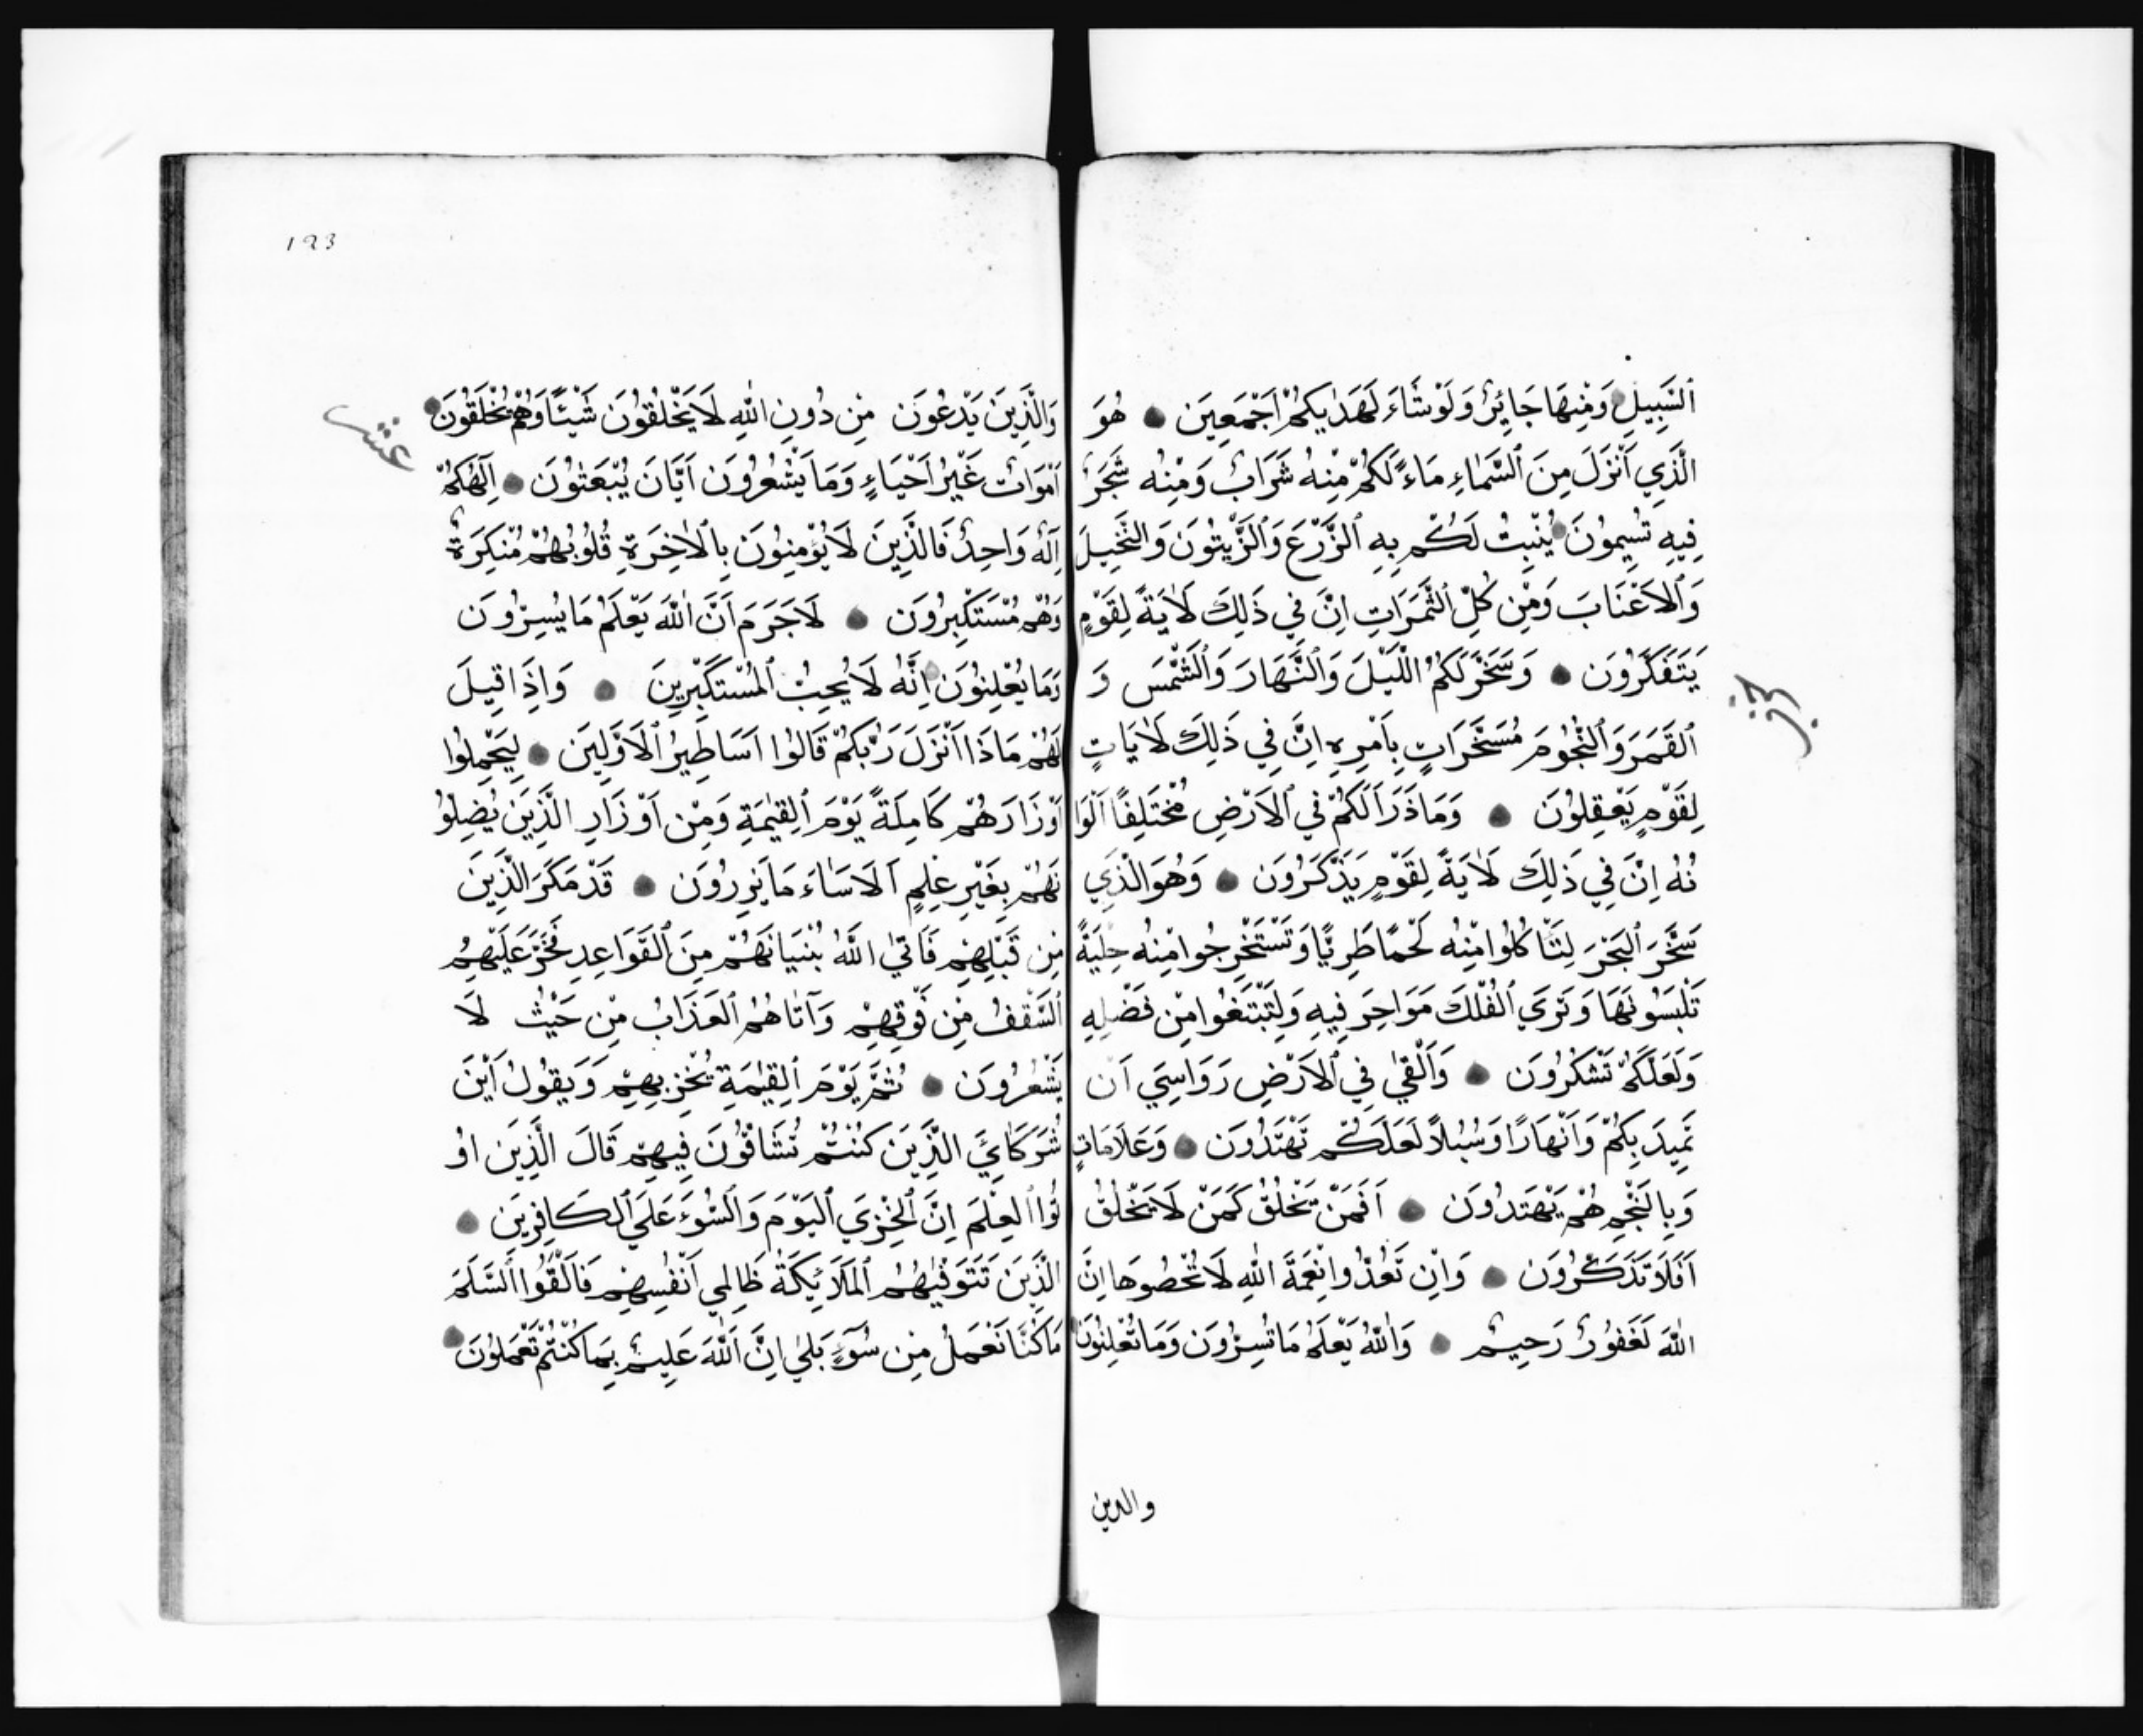 اَلسَّبِيلِ وَمِنْهَا جَائِرٌ وَلَوْ شَاءَ لَهَدٰيكُمْ اَجْمَعِينَ ۝ هُوَ
الَّذِي اَنْزَلَ مِنَ السَّمَاءِ مَاءً لَكُمْ مِنْهُ شَرَابٌ وَمِنْهُ شَجَرٌ
فِيهِ تُسِيمُونَ ۝ يُنْبِتُ لَكُمْ بِهِ الزَّرْعَ وَالزَّيْتُونَ وَالنَّخِيلَ
وَالْاَعْنَابَ وَمِنْ كُلِّ الثَّمَرَاتِ اِنَّ فِي ذٰلِكَ لَاٰيَةً لِقَوْمٍ
يَتَفَكَّرُونَ ۝ وَسَخَّرَ لَكُمُ اللَّيْلَ وَالنَّهَارَ وَالشَّمْسَ وَ
الْقَمَرَ وَالنُّجُومَ مُسَخَّرَاتٍ بِاَمْرِهِ اِنَّ فِي ذٰلِكَ لَاٰيَاتٍ
لِقَوْمٍ يَعْقِلُونَ ۝ وَمَا ذَرَاَ لَكُمْ فِي الْاَرْضِ مُخْتَلِفًا اَلْوَا
نُهُ اِنَّ فِي ذٰلِكَ لَاٰيَةً لِقَوْمٍ يَذَّكَّرُونَ ۝ وَهُوَ الَّذِي
سَخَّرَ الْبَحْرَ لِتَاْكُلُوا مِنْهُ لَحْمًا طَرِيًّا وَتَسْتَخْرِجُوا مِنْهُ حِلْيَةً
تَلْبَسُونَهَا وَتَرَي الْفُلْكَ مَوَاخِرَ فِيهِ وَلِتَبْتَغُوا مِنْ فَضْلِهِ
وَلَعَلَّكُمْ تَشْكُرُونَ ۝ وَاَلْقٰي فِي الْاَرْضِ رَوَاسِيَ اَنْ
تَمِيدَ بِكُمْ وَاَنْهَارًا وَسُبُلًا لَعَلَّكُمْ تَهْتَدُونَ ۝ وَعَلَامَاتٍ
وَبِالنَّجْمِ هُمْ يَهْتَدُونَ ۝ اَفَمَنْ يَخْلُقُ كَمَنْ لَا يَخْلُقُ
اَفَلَا تَذَكَّرُونَ ۝ وَاِنْ تَعُدُّوا نِعْمَةَ اللّٰهِ لَا تُحْصُوهَا اِنَّ
اللّٰهَ لَغَفُورٌ رَحِيمٌ ۝ وَاللّٰهُ يَعْلَمُ مَا تُسِرُّونَ وَمَا تُعْلِنُونَ
والذين
حزب
123
وَالَّذِينَ يَدْعُونَ مِنْ دُونِ اللّٰهِ لَا يَخْلُقُونَ شَيْئًا وَهُمْ يُخْلَقُونَ ۝
اَمْوَاتٌ غَيْرُ اَحْيَاءٍ وَمَا يَشْعُرُونَ اَيَّانَ يُبْعَثُونَ ۝ اِلٰهُكُمْ
اِلٰهٌ وَاحِدٌ فَالَّذِينَ لَا يُؤْمِنُونَ بِالْاٰخِرَةِ قُلُوبُهُمْ مُنْكِرَةٌ
وَهُمْ مُسْتَكْبِرُونَ ۝ لَا جَرَمَ اَنَّ اللّٰهَ يَعْلَمُ مَا يُسِرُّونَ
وَمَا يُعْلِنُونَ اِنَّهُ لَا يُحِبُّ الْمُسْتَكْبِرِينَ ۝ وَاِذَا قِيلَ
لَهُمْ مَاذَا اَنْزَلَ رَبُّكُمْ قَالُوا اَسَاطِيرُ الْاَوَّلِينَ ۝ لِيَحْمِلُوا
اَوْزَارَهُمْ كَامِلَةً يَوْمَ الْقِيٰمَةِ وَمِنْ اَوْزَارِ الَّذِينَ يُضِلُّو
نَهُمْ بِغَيْرِ عِلْمٍ اَلَا سَاءَ مَا يَزِرُونَ ۝ قَدْ مَكَرَ الَّذِينَ
مِنْ قَبْلِهِمْ فَاَتٰي اللّٰهُ بُنْيَانَهُمْ مِنَ الْقَوَاعِدِ فَخَرَّ عَلَيْهِمُ
السَّقْفُ مِنْ فَوْقِهِمْ وَآتَاهُمُ الْعَذَابُ مِنْ حَيْثُ لَا
يَشْعُرُونَ ۝ ثُمَّ يَوْمَ الْقِيٰمَةِ يُخْزِيهِمْ وَيَقُولُ اَيْنَ
شُرَكَائِيَ الَّذِينَ كُنْتُمْ تُشَاقُّونَ فِيهِمْ قَالَ الَّذِينَ اُو
تُوا الْعِلْمَ اِنَّ الْخِزْيَ الْيَوْمَ وَالسُّوءَ عَلَي الْكَافِرِينَ ۝
الَّذِينَ تَتَوَفّٰيهُمُ الْمَلَائِكَةُ ظَالِمِي اَنْفُسِهِمْ فَاَلْقَوُا السَّلَمَ
مَا كُنَّا نَعْمَلُ مِنْ سُوءٍ بَلٰي اِنَّ اللّٰهَ عَلِيمٌ بِمَا كُنْتُمْ تَعْمَلُونَ ۝
عشر